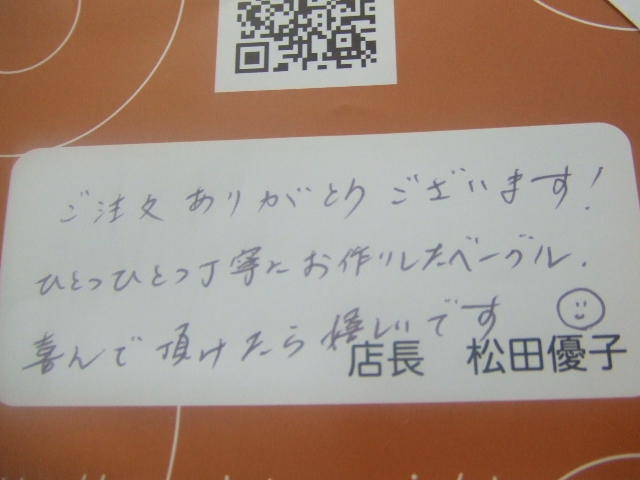 ご注文ありがとうございます!
ひとつひとつ丁寧にお作りしたベーグル.
喜んで頂けたら嬉しいです
店長 松田優子